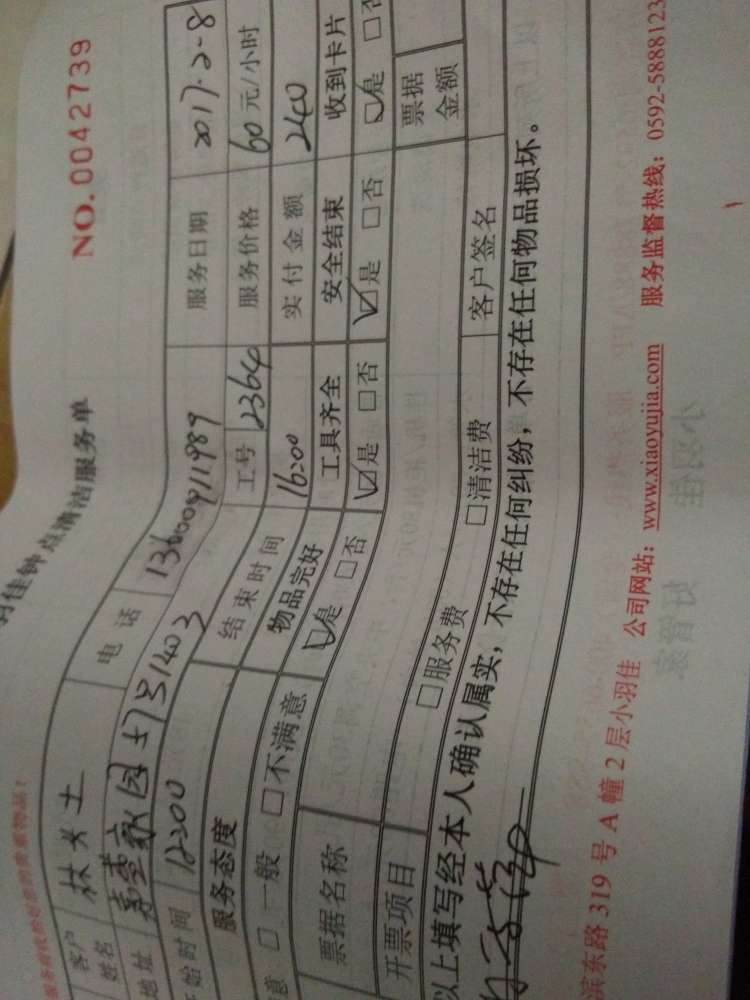 服务前请收好您的贵重物品!
羽佳钟点清洁服务单 NO.0042739
客户姓名 林女士 电话 13600911989 服务日期 2017-2-8
地址 57号1403 工号 2364 服务价格 60元/小时
始时间 12:00 结束时间 16:00 实付金额 240
服务态度 物品完好 工具齐全 安全结束 收到卡片
意 □一般 □不满意 ☑是 □否 ☑是 □否 ☑是 □否 ☑是 □否
票据名称 票据金额
开票项目 □服务费 □清洁费 客户签名
以上填写经本人确认属实,不存在任何纠纷,不存在任何物品损坏。
滨东路 319 号 A 幢 2 层小羽佳 公司网站:www.xiaoyujia.com 服务监督热线:0592-5888123